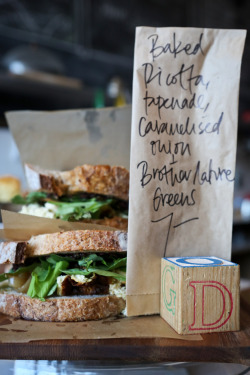 Baked
Ricotta,
tapenade,
Caramelised
onion
Brother/ature
Greens
7-
G D